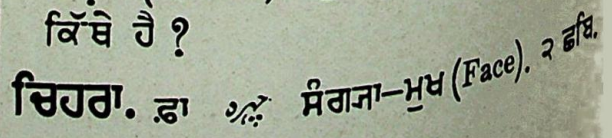 ਕਿੱਥੇ ਹੈ ?
ਚਿਹਰਾ. ਫ਼ਾ ਸੰਗ੍ਯਾ-ਮੁਖ (Face). ੨ ਛਬਿ.